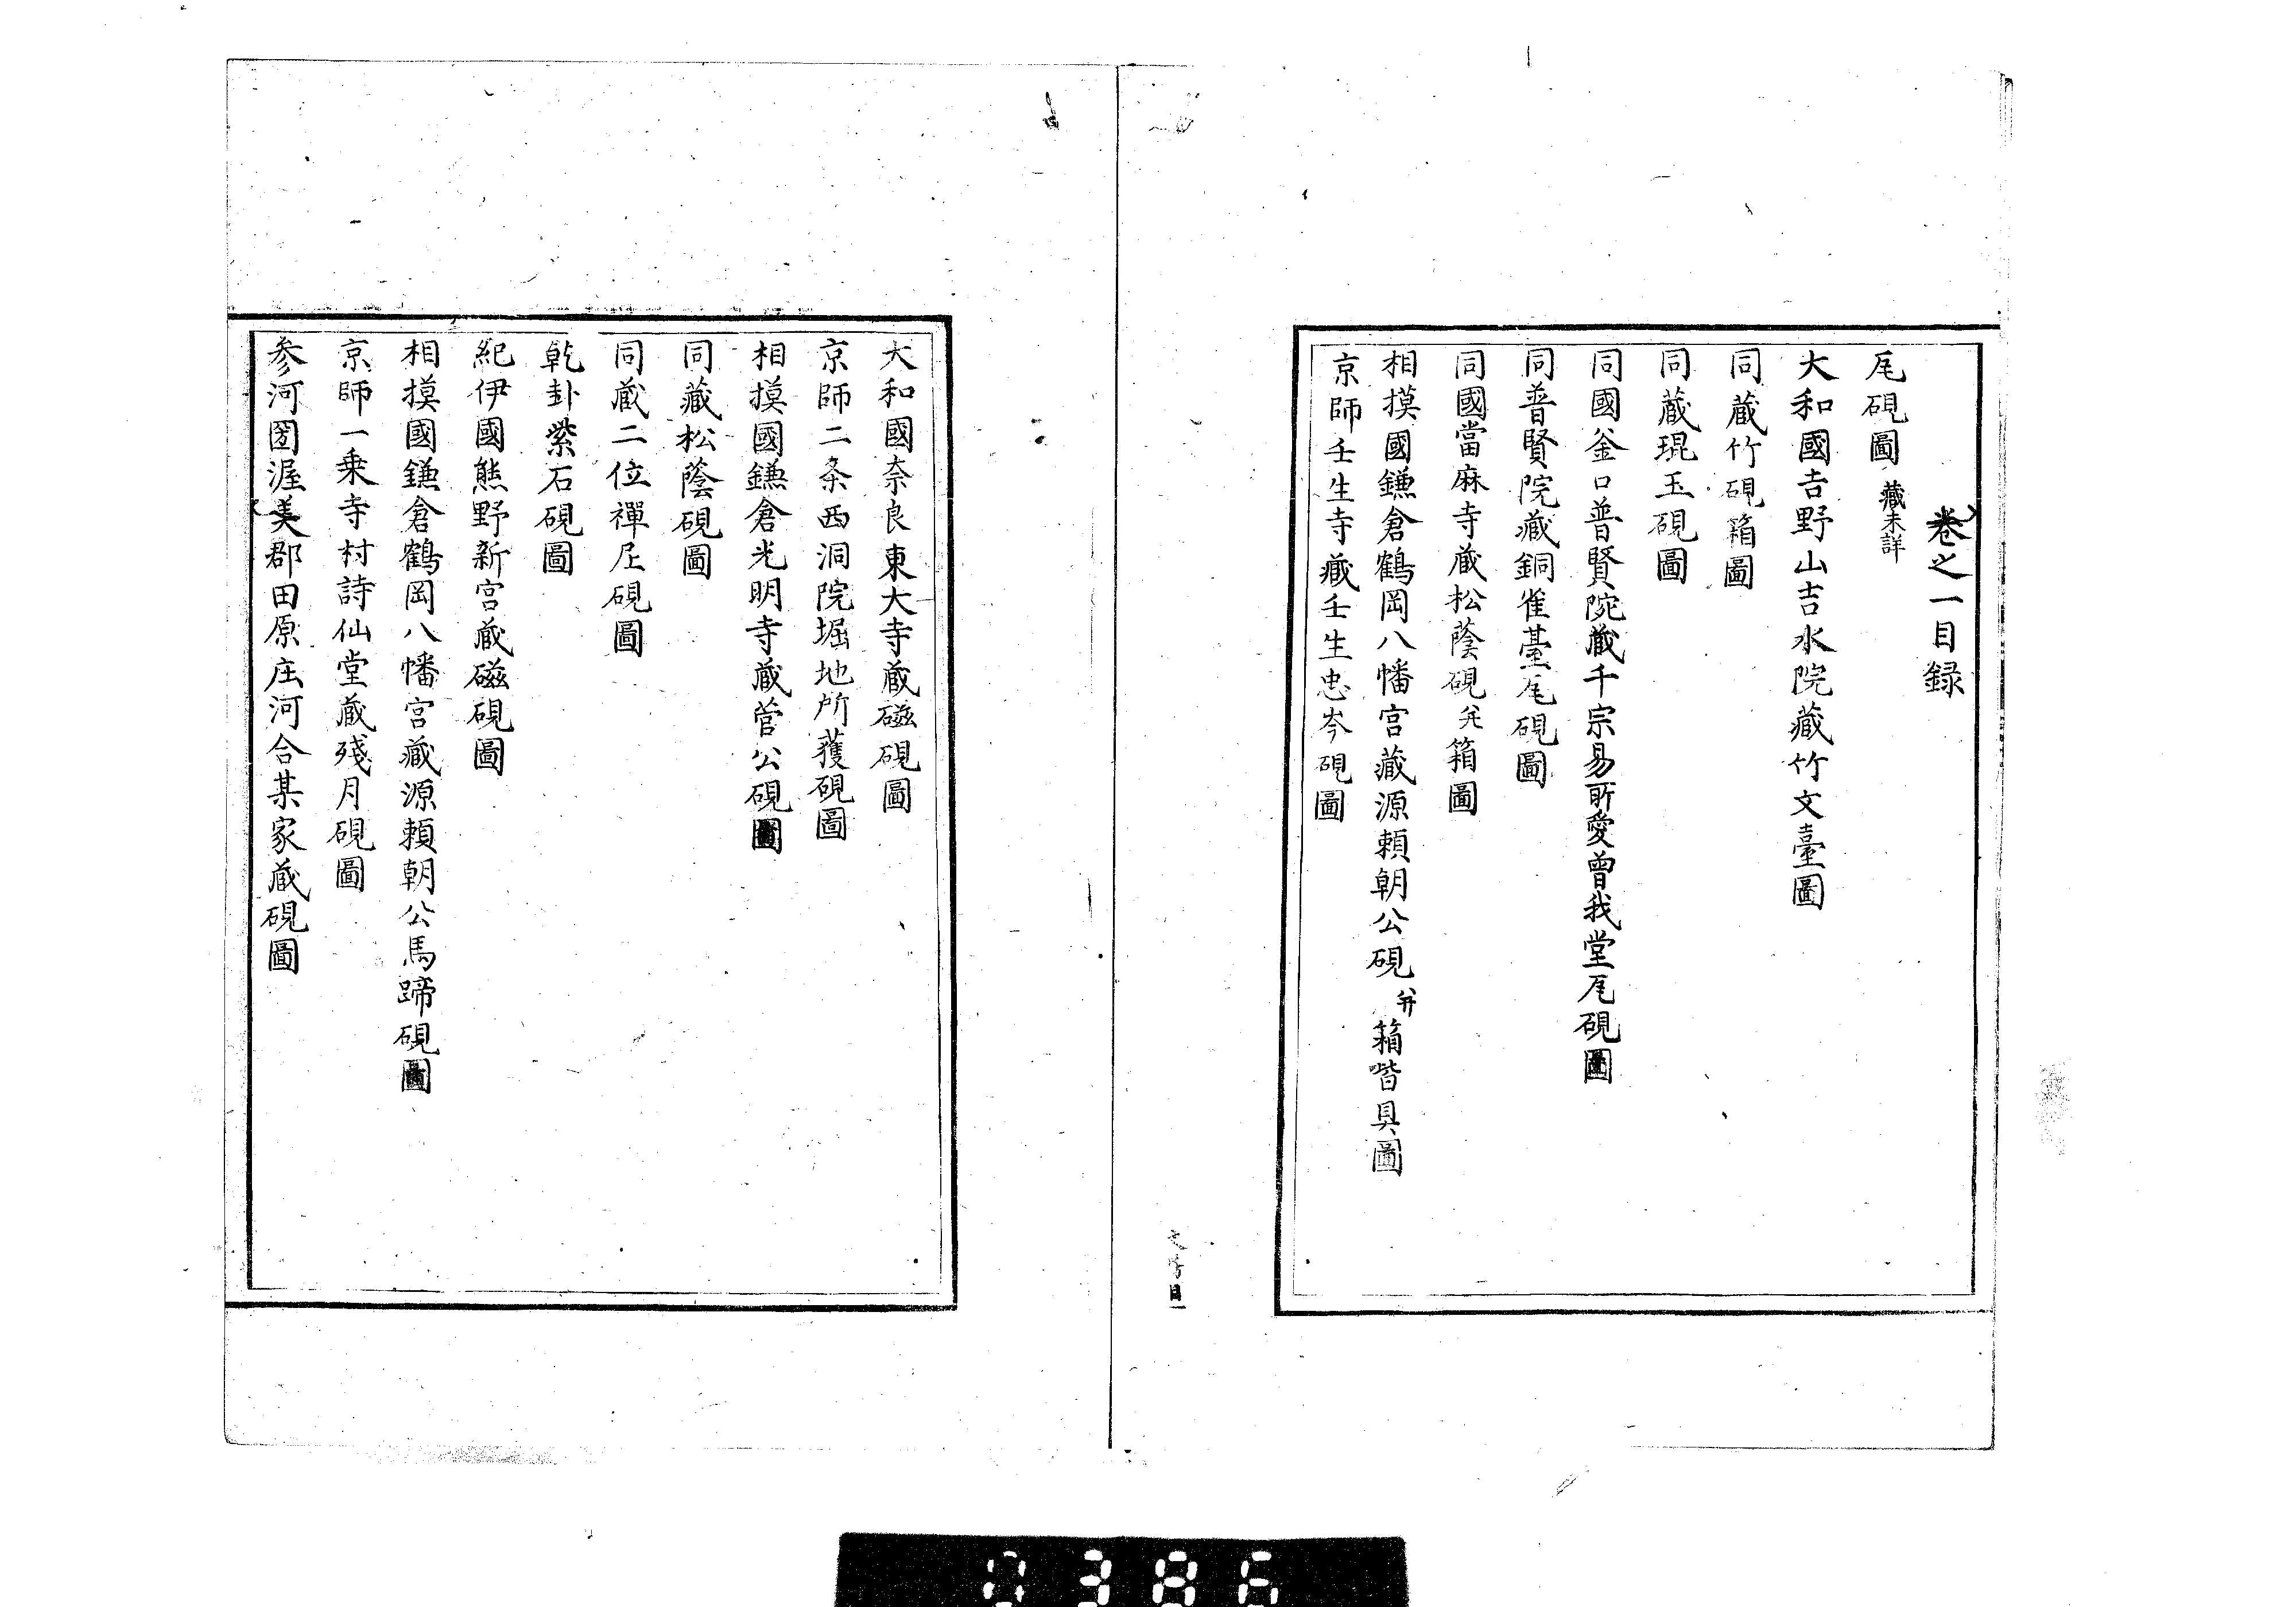 卷之一目録
瓦硯圖 藏未詳
大和國吉野山吉水院藏竹文臺圖
同藏竹硯箱圖
同藏琨玉硯圖
同國釜口普賢院藏千宗易所愛曾我堂瓦硯圖
同普賢院藏銅雀臺瓦硯圖
同國當麻寺藏松蔭硯并箱圖
相摸國鎌倉鶴岡八幡宮藏源頼朝公硯并箱喈具圖
京師壬生寺藏壬生忠岑硯圖
文房目一
大和國奈良東大寺藏磁硯圖
京師二条西洞院堀地所獲硯圖
相摸國鎌倉光明寺藏菅公硯圖
同藏松蔭硯圖
同藏二位禪尼硯圖
乾卦紫石硯圖
紀伊國熊野新宮藏磁硯圖
相摸國鎌倉鶴岡八幡宮藏源頼朝公馬蹄硯圖
京師一乗寺村詩仙堂藏殘月硯圖
参河国渥美郡田原庄河合某家藏硯圖
0386